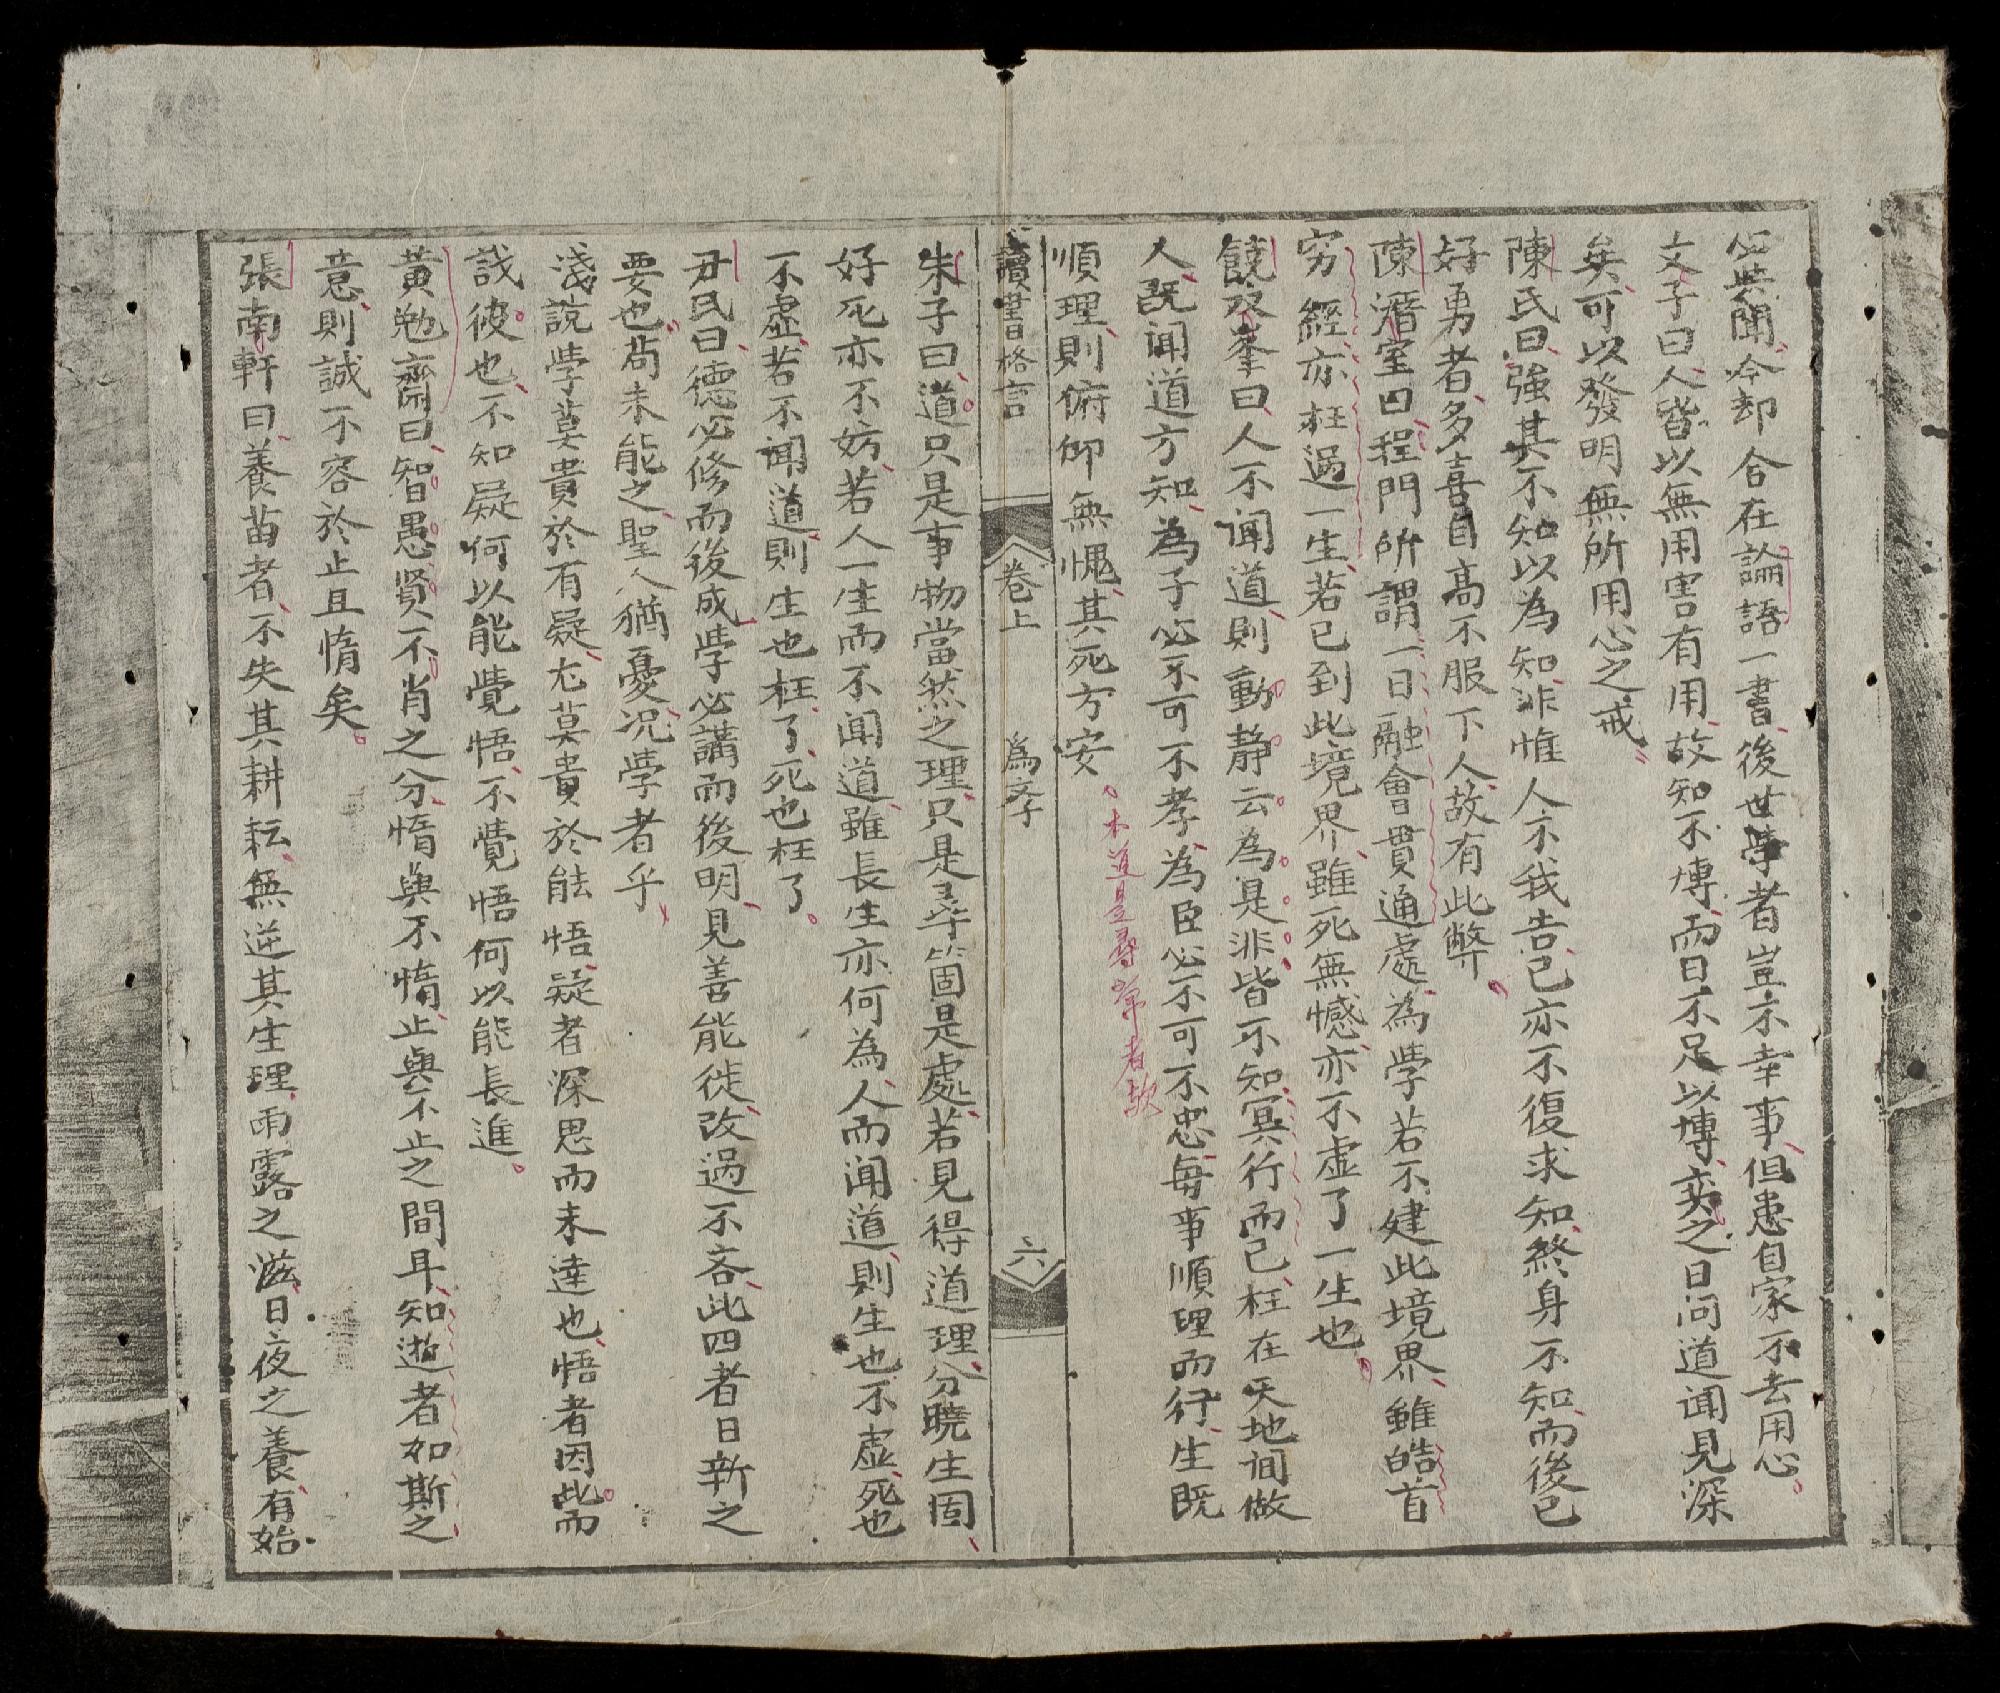 必共聞今却合在論語一書後世學者豈不幸事但患自家不去用心
文子曰人皆以無用害有用故知不博而日不足以博奕之日问道闻見深
矣可以發明無所用心之戒
陳氏曰強其不知以為知非惟人不我告已亦不復求知終身不知而後已
好勇者多喜自高不服下人故有此弊
陳潛室曰程門所謂一日融會貫通處為學若不建此境界雖皓首
穷經亦枉過一生若已到此境界雖死無憾亦不虚了一生也
饒双峯曰人不闻道則動静云為是非皆不知冥行而已枉在天地间做
人既闻道方知為子必不可不孝為臣必不可不忠每事順理而行生既
順理則俯仰無愧其死方安
本道是尋常者欤
讀書格言 卷上 為字 六
朱子曰道只是事物當然之理只是尋箇是處若見得道理分曉生固
好死亦不妨若人一生而不闻道雖長生亦何為人而闻道則生也不虚死也
不虚若不闻道則生也枉了死也枉了
尹氏曰德必修而後成學必講而後明見善能徙改過不吝此四者日新之
要也茍未能之聖人猶憂况學者乎
淺説學莫貴於有疑尤莫貴於能悟疑者深思而未達也悟者因此而
識彼也不知疑何以能覺悟不覺悟何以能長進
黃勉齋曰智愚贤不肖之分惰與不惰止與不止之間耳知逝者如斯之
意則誠不容於止且惰矣
張南軒曰養苗者不失其耕耘無逆其生理雨露之滋日夜之養有始